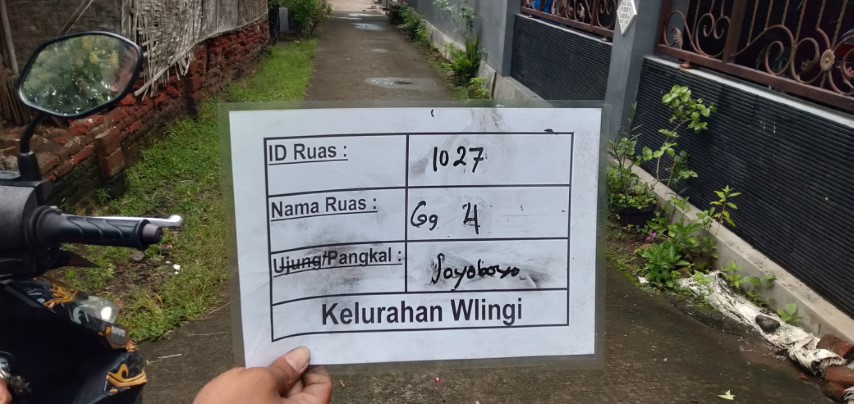 ID Ruas : 1027
Nama Ruas : Gg 4
Ujung/Pangkal : Joyoboyo
Kelurahan Wlingi